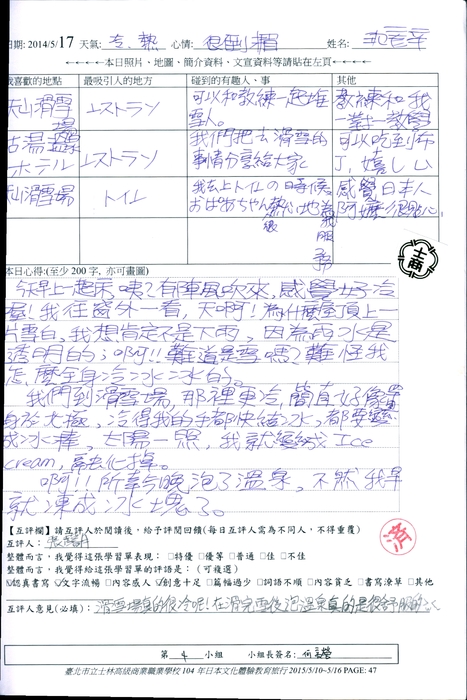 日期: 2014/5/17 天氣: 冷、熱 心情: 很倒楣 姓名:
本日照片、地圖、簡介資料、文宣資料等請貼在左頁
我喜歡的地點 最吸引人的地方 碰到的有趣人、事 其他
滑雪場 レストラン 可以和教練一起堆雪人。 教練和我一對一教學
ホテル レストラン 我們把去滑雪的事情分享給大家 可以吃到布丁,嬉しい
滑雪場 トイレ 我去上トイレの時候,おばあちゃん熱心地為我服務 感覺日本人阿嬤很貼心
士商
本日心得:(至少 200 字, 亦可畫圖)
今天早上一起床,咦?有陣風吹來,感覺好冷
喔!我往窗外一看,天啊!為什麼屋頂上一
片雪白,我想肯定不是下雨,因為雨水是
透明的;啊!!難道是雪嗎?難怪我
怎麼全身冷冰冰的。
我們到滑雪場,那裡更冷,簡直好像置
身於北極,冷得我的手都快結冰,都要變
成冰棒,太陽一照,我就變成 Ice
cream,融化掉。
啊!!所幸今晚泡了溫泉,不然我早
就凍成冰塊了。
【互評欄】請互評人於閱讀後,給予評閱回饋(每日互評人需為不同人,不得重覆)
互評人:
整體而言,我覺得這張學習單表現: □特優 □優等 □普通 □佳 □不佳
整體而言,我覺得給這張學習單的評語是: (可複選)
☑認真書寫 ☑文字流暢 □內容感人 ☑創意十足 □篇幅過少 □詞語不順 □內容貧乏 □書寫潦草 □其他
互評人意見(必填): 滑雪場真的很冷呢!在滑完雪後泡溫泉真的是很舒服的
第 4 小組 小組長簽名:
臺北市立士林高級商業職業學校 104 年日本文化體驗教育旅行 2015/5/10~5/16 PAGE: 47